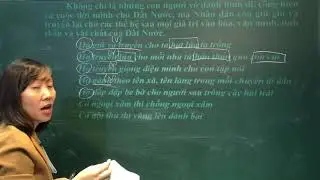 Không chỉ là những con người vô danh bình dị, cống hiến
cả cuộc đời mình cho Đất Nước, mà Nhân dân còn giữ gìn và
truyền lại cho các thế hệ sau mọi giá trị văn hóa, văn minh, tinh
thần và vật chất của Đất Nước.
Họ giữ và truyền cho ta hạt lúa ta trồng
Họ truyền lửa cho mỗi nhà than qua con cúi
Họ truyền giọng điệu mình cho con tập nói
Họ theo tên xã, tên làng trong mỗi chuyến di dân
Họ đắp đập be bờ cho người sau trồng cây hái trái
Có ngoại xâm thì chống ngoại xâm
Có nội thù thì vùng lên đánh bại